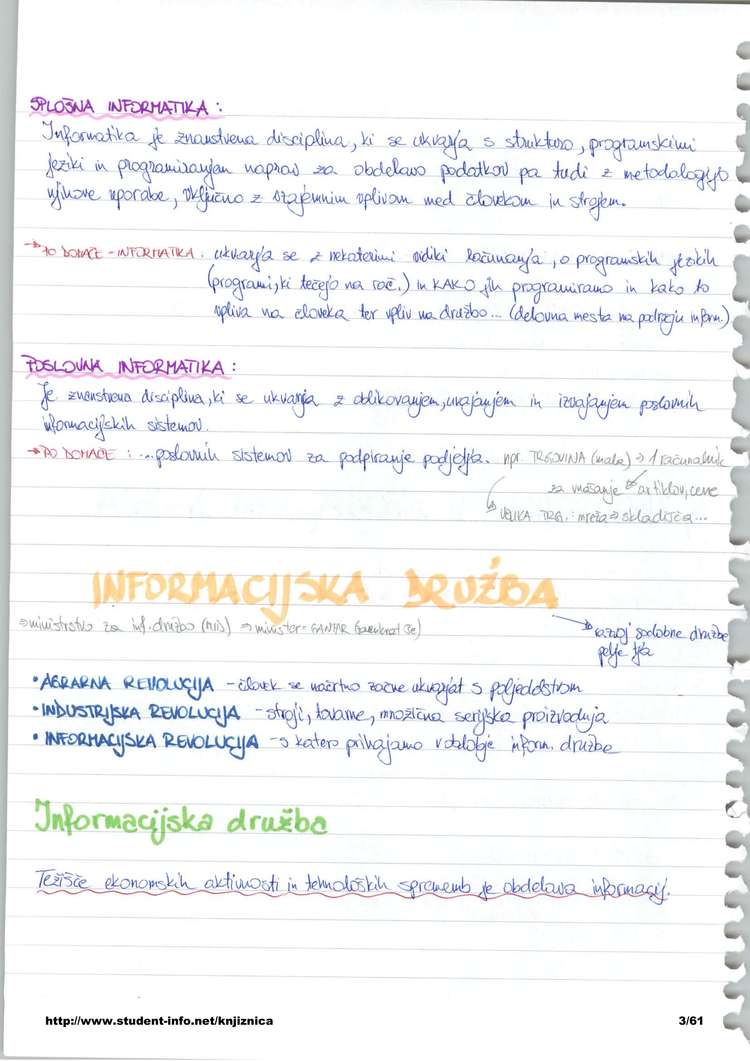 SPLOŠNA INFORMATIKA :
Informatika je znanstvena disciplina, ki se ukvarja s strukturo, programskimi
jeziki in programiranjem naprav za obdelavo podatkov pa tudi z metodologijo
njihove uporabe, vključno z vzajemnim vplivom med človekom in strojem.
→ PO DOMAČE - INFORMATIKA. ukvarja se z nekaterimi vidiki računanja, o programskih jezikih
(programi, ki tečejo na rač.) in KAKO jih programiramo in kako to
vpliva na človeka ter vpliv na družbo... (delovna mesta na področju inform.)
POSLOVNA INFORMATIKA :
je znanstvena disciplina, ki se ukvarja z oblikovanjem, uvajanjem in izvajanjem poslovnih
informacijskih sistemov.
→ PO DOMAČE : ...poslovnih sistemov za podpiranje podjetja. npr. TRGOVINA (mala) → 1 računalnik
za vnašanje artiklov, cene
VELIKA TRG.: mreža → skladišča...
INFORMACIJSKA DRUŽBA
⇒ ministrstvo za inf. družbo (mid) ⇒ minister = GANTAR
razvoj sodobne družbe
pelje tja
• AGRARNA REVOLUCIJA - človek se načrtno začne ukvarjat s poljedelstvom
• INDUSTRIJSKA REVOLUCIJA - stroji, tovarne, množična serijska proizvodnja
• INFORMACIJSKA REVOLUCIJA - s katero prihajamo v obdobje inform. družbe
Informacijska družba
Težišče ekonomskih aktivnosti in tehnoloških sprememb je obdelava informacij.
http://www.student-info.net/knjiznica 3/61